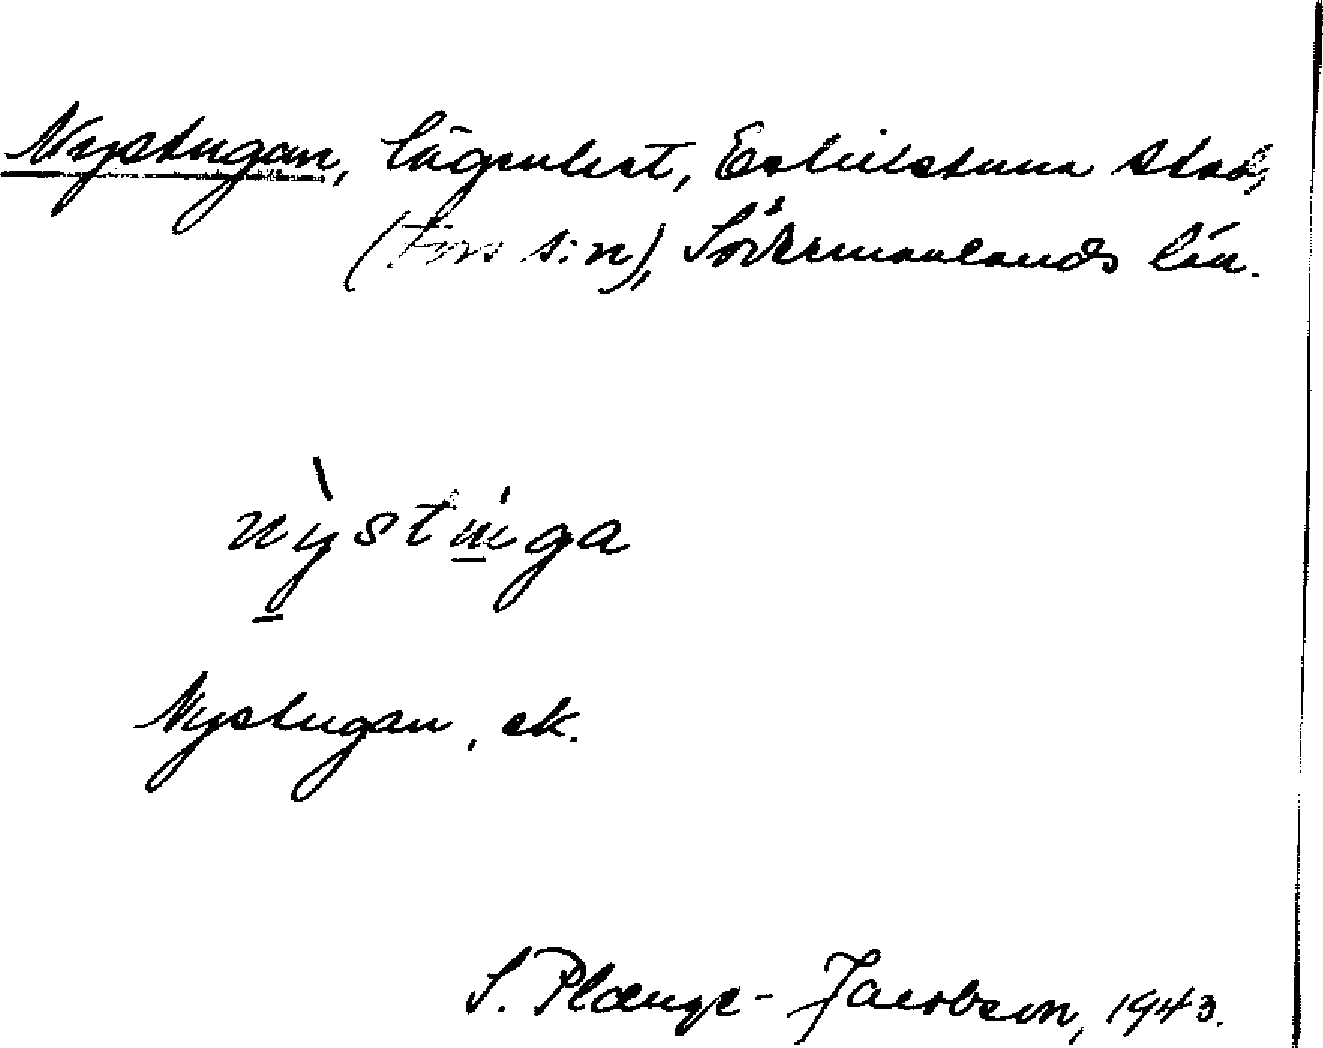 Nystugan, lägenhet, Eskilstuna stad,
(Fors s:n), Södermanlands län.
nỳstuga
Nystugan, ek.
S. Plænge-Jacobson, 1943.